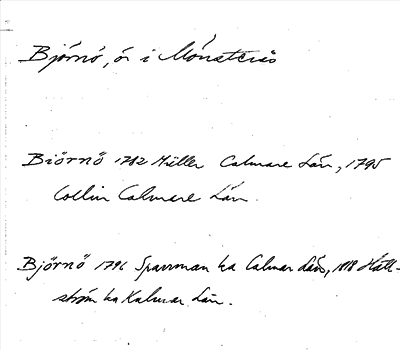 Björnö, ö i Mönsterås
Biörnö 1782 Müller Calmare Län, 1795
Collin Calmare Län.
Björnö 1796 Sparrman ka Calmar Län, 1818 Häll-
ström ka Kalmar Län.